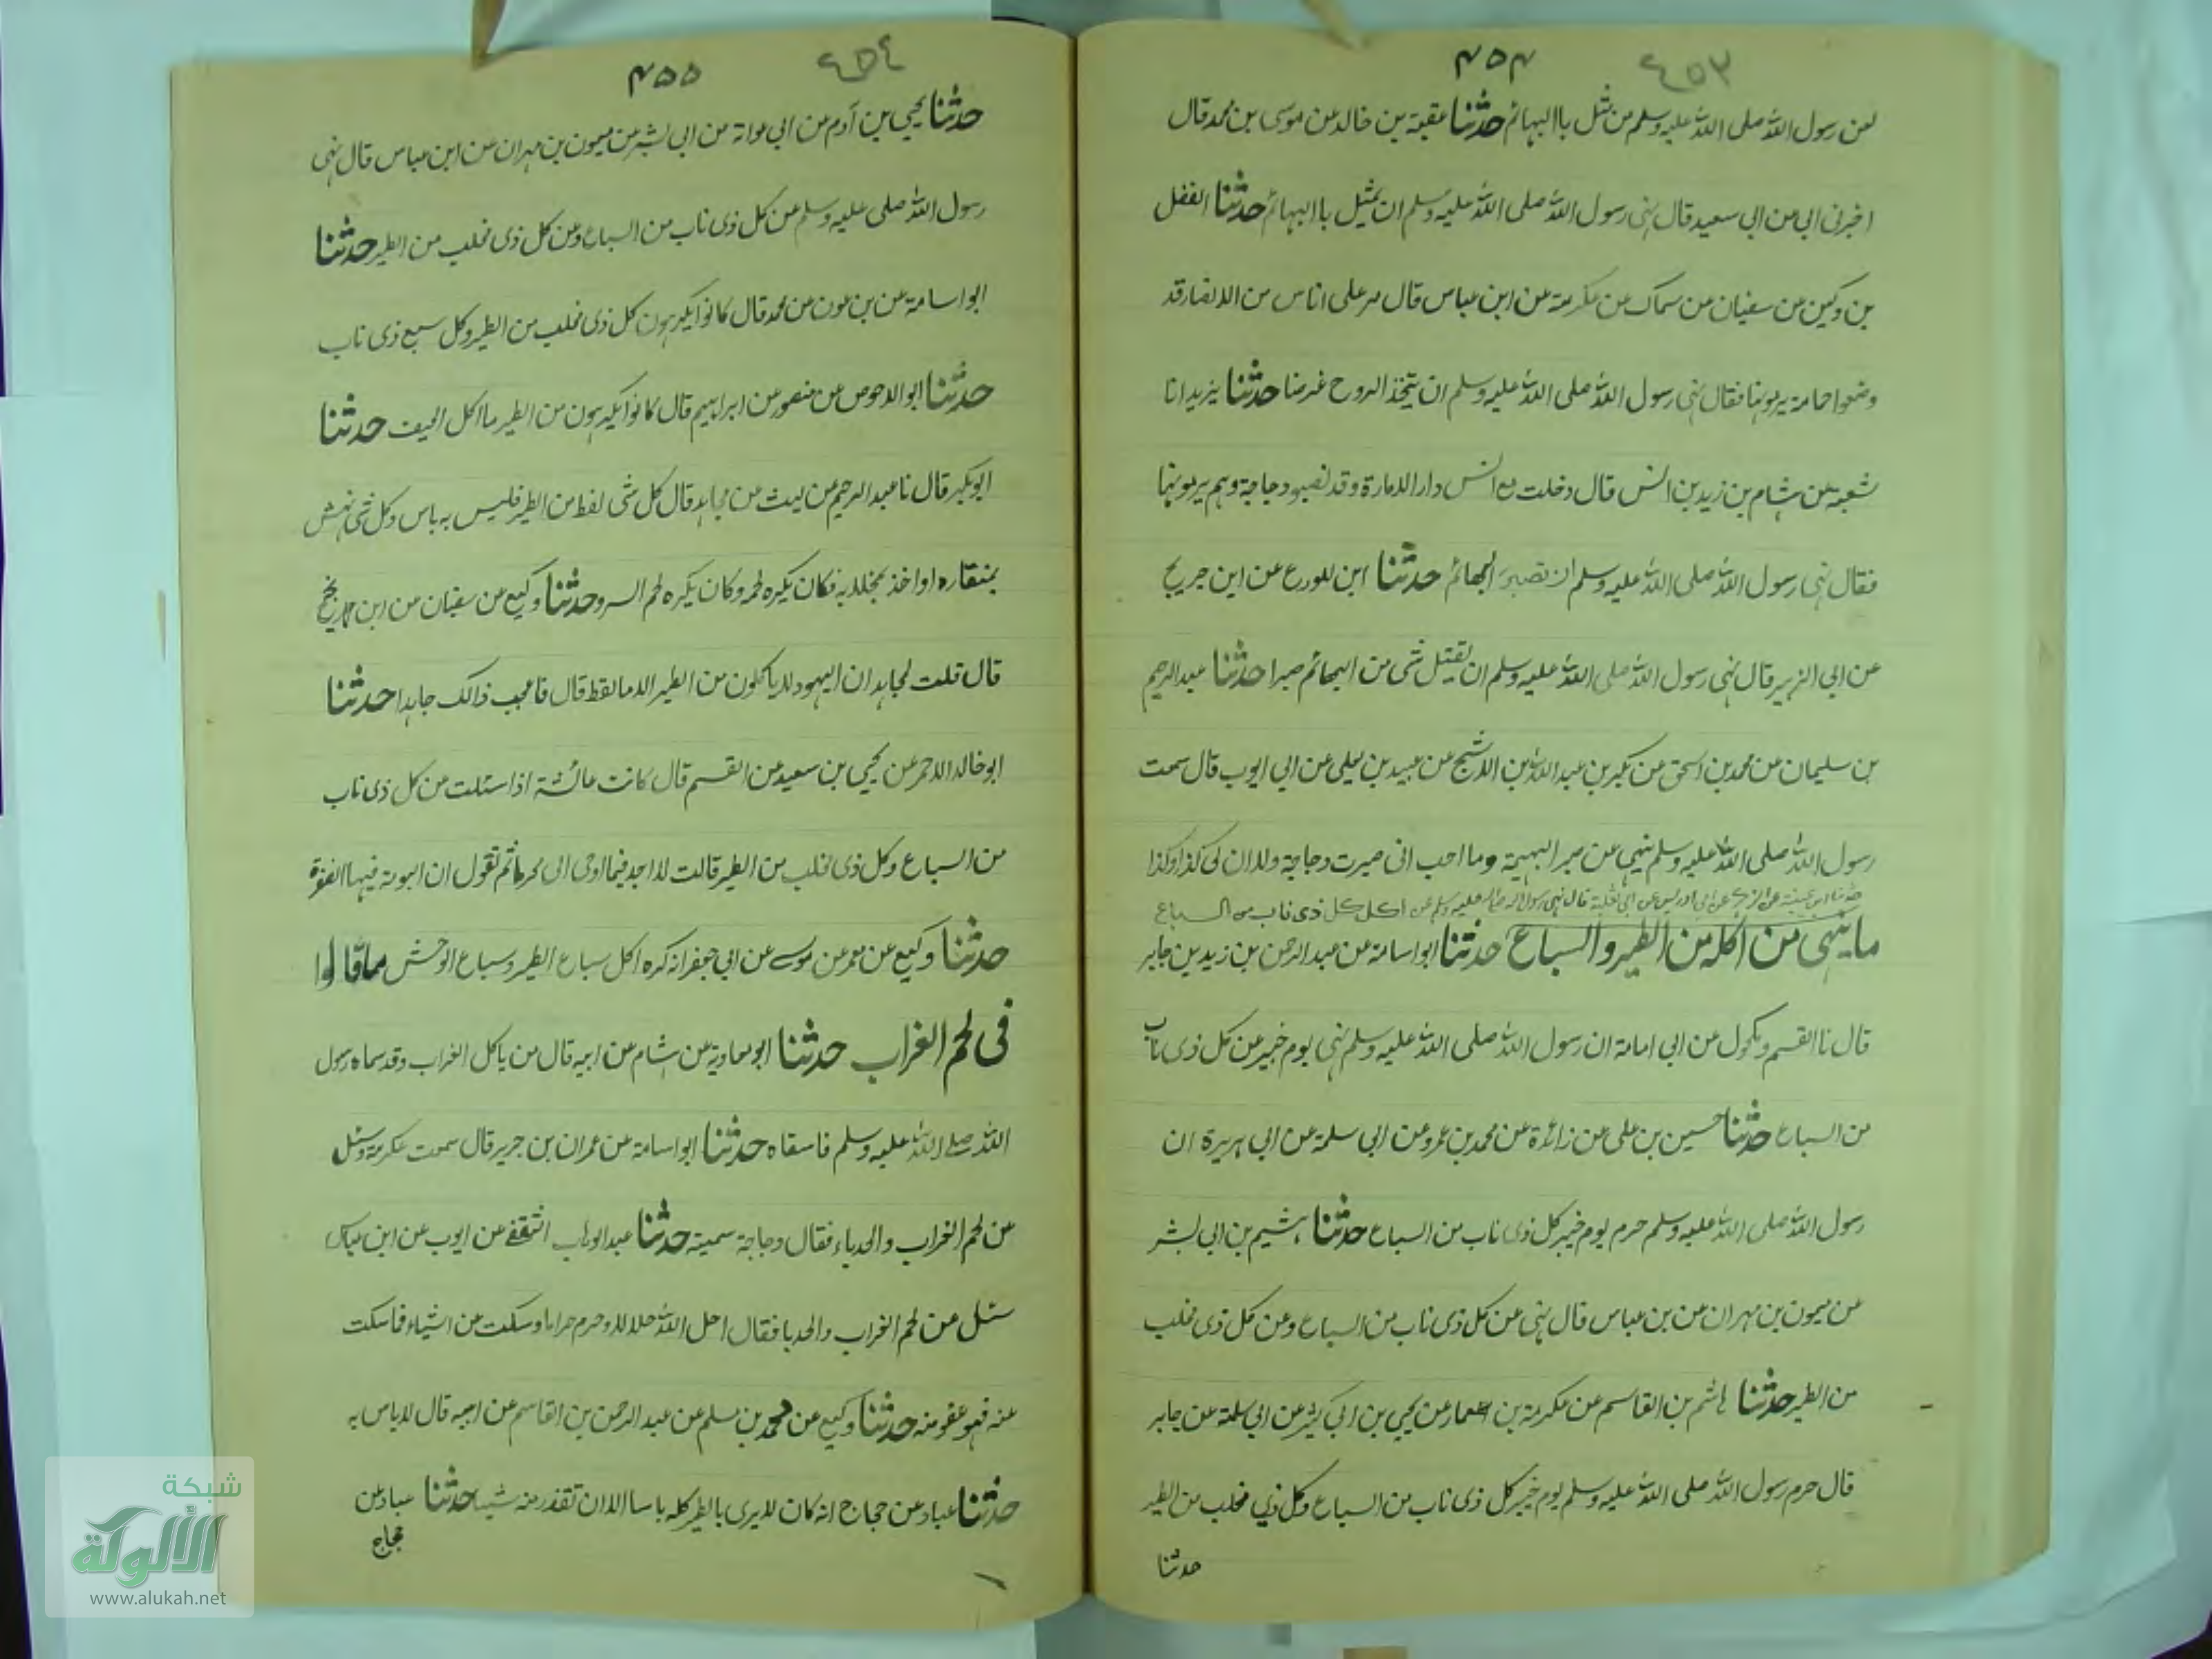 ٤٥٣ ۴۵۴
لعن رسول الله صلى الله عليه وسلم من مثل باالبهائم حدثنا عقبة بن خالد عن موسى بن محمد قال
اخبرنى ابى عن ابى سعيد قال نهى رسول الله صلى الله عليه وسلم ان يمثل باالبهائم حدثنا الفضل
بن دكين عن سفيان عن سماك عن عكرمة عن ابن عباس قال مر على اناس من الانصار قد
وضعوا حمامة يرمونها فقال نهى رسول الله صلى الله عليه وسلم ان يتخذ الروح غرضا حدثنا يزيد انا
شعبة عن هشام بن زيد بن انس قال دخلت مع انس دار الامارة وقد نصبو دجاجة وهم يرمونها
فقال نهى رسول الله صلى الله عليه وسلم ان تصبر البهائم حدثنا ابن للورع عن ابن جريج
عن ابى الزبير قال نهى رسول الله صلى الله عليه وسلم ان يقتل شى من البهائم صبرا حدثنا عبد الرحيم
بن سليمان عن محمد بن اسحق عن بكير بن عبد الله بن الاشج عن عبيد بن يعلى عن ابى ايوب قال سمعت
رسول الله صلى الله عليه وسلم ينهى عن صبر البهيمة وما احب انى صبرت دجاجة ولا ان لى كذا وكذا
حدثنا ابن عيينة عن الزهرى عن ابى ادريس عن ابى ثعلبة قال نهى رسول الله صلى الله عليه وسلم عن اكل كل ذى ناب من السباع
ما ينهى عن اكله من الطير والسباع حدثنا ابو اسامة عن عبد الرحمن بن زيد بن جابر
قال نا القسم ومكحول عن ابى امامة ان رسول الله صلى الله عليه وسلم نهى يوم خيبر عن كل ذى ناب
من السباع حدثنا حسين بن على عن زائدة عن محمد بن عمرو عن ابى سلمة عن ابى هريرة ان
رسول الله صلى الله عليه وسلم حرم يوم خيبر كل ذى ناب من السباع حدثنا هشيم بن ابى بشر
عن ميمون بن مهران عن بن عباس قال نهى عن كل ذى ناب من السباع وعن كل ذى مخلب
من الطير حدثنا هاشم بن القاسم عن عكرمة بن عمار عن يحيى بن ابى كثير عن ابى سلمة عن جابر
قال حرم رسول الله صلى الله عليه وسلم يوم خيبر كل ذى ناب من السباع وكل ذي مخلب من الطير
حدثنا
٤٥٤ ۴۵۵
حدثنا يحيى بن آدم عن ابى عوانة عن ابى بشر عن ميمون بن مهران عن ابن عباس قال نهى
رسول الله صلى عليه وسلم عن كل ذى ناب من السباع وعن كل ذى مخلب من الطير حدثنا
ابو اسامة عن بن عون عن محمد قال كانوا يكرهون كل ذى مخلب من الطير وكل سبع ذى ناب
حدثنا ابو الاحوص عن منصور عن ابراهيم قال كانوا يكرهون من الطير ما اكل الجيف حدثنا
ابوبكر قال نا عبد الرحيم عن ليث عن مجاهد قال كل شى لفظ من الطير فليس به باس وكل شى نهش
بمنقاره او اخذ بمخلابه فكان يكره لحمه وكان يكره لحم السر وحدثنا وكيع عن سفيان عن ابن ابى نجيح
قال قلت لمجاهد ان اليهود لا ياكلون من الطير الا ما لقط قال فاعجب ذالك مجاهدا حدثنا
ابو خالد الاحمر عن يحيى بن سعيد عن القسم قال كانت عائشة اذا سئلت عن كل ذى ناب
من السباع وكل ذى مخلب من الطير قالت لا اجد فيما اوحى الى محرما ثم تقول ان البرمة فيها الصفرة
حدثنا وكيع عن معمر عن موسى عن ابى جعفر انه كره اكل سباع الطير وسباع الوحش ما قالوا
فى لحم الغراب حدثنا ابو معاوية عن هشام عن ابيه قال من ياكل الغراب وقد سماه رسول
الله صلے الله عليه وسلم فاسقاه حدثنا ابو اسامة عن عمران بن جرير قال سمعت عكرمة وسئل
عن لحم الغراب والحدياء فقال دجاجة سمينة حدثنا عبد الوهاب الثقفے عن ايوب عن ابن عباس
سئل عن لحم الغراب والحديا فقال احل الله حلالا وحرم حراما وسكت عن اشياء فما سكت
عنه فهو عفو منه حدثنا وكيع عن محمد بن مسلم عن عبد الرحمن بن القاسم عن ابيه قال لا باس به
حدثنا عباد عن حجاج انه كان لا يرى بالطير كله باسا الا ان تقذر منه شيا حدثنا عباد عن
حجاج
شبكة
الألوكة
www.alukah.net